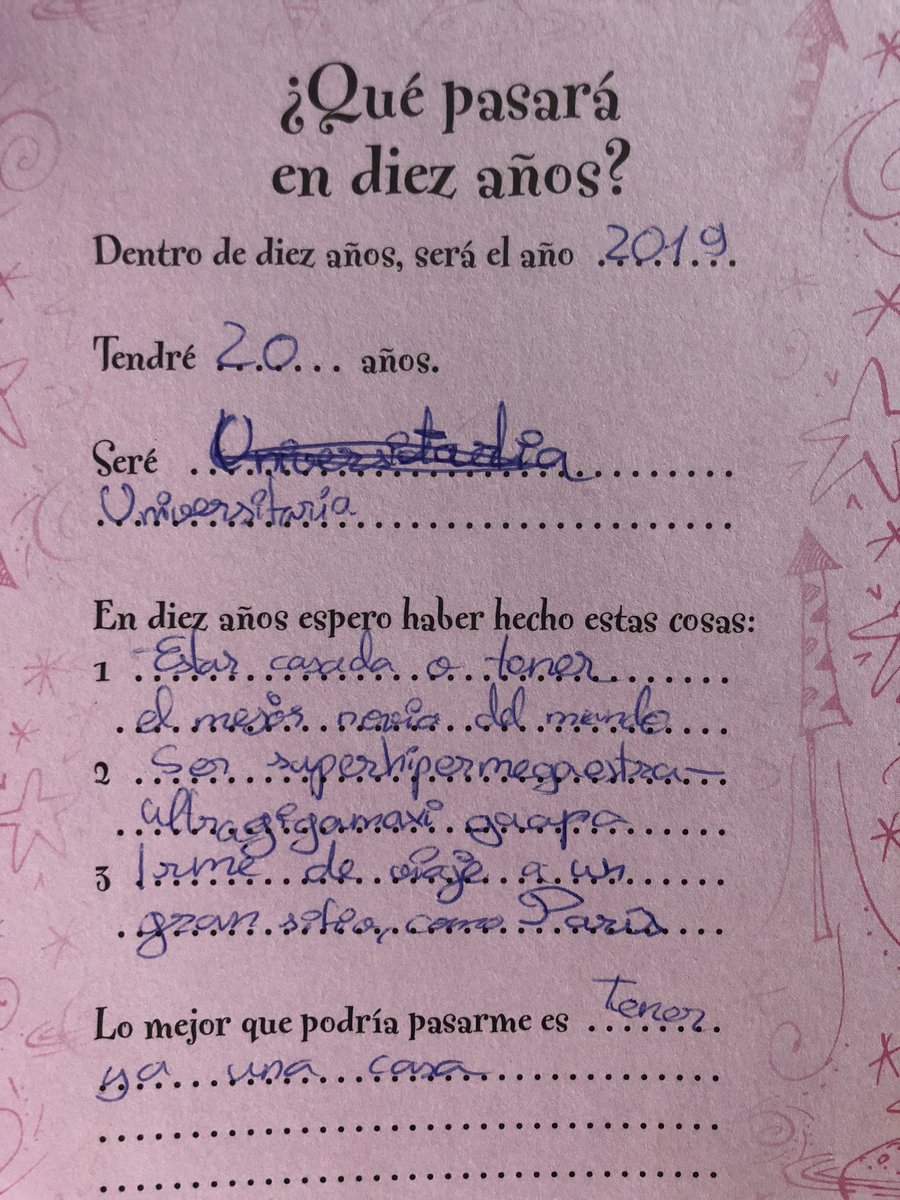 ¿Qué pasará
en diez años?
Dentro de diez años, será el año 2019
Tendré 20 años.
Seré Universitaria
Universitaria
En diez años espero haber hecho estas cosas:
1 -Estar casada o tener
el mejor novio del mundo
2 Ser superhipermegaestra-
ultragigamaxi guapa
3 Irme de viaje a un
gran sitio, como París
Lo mejor que podría pasarme es tener
ya una casa